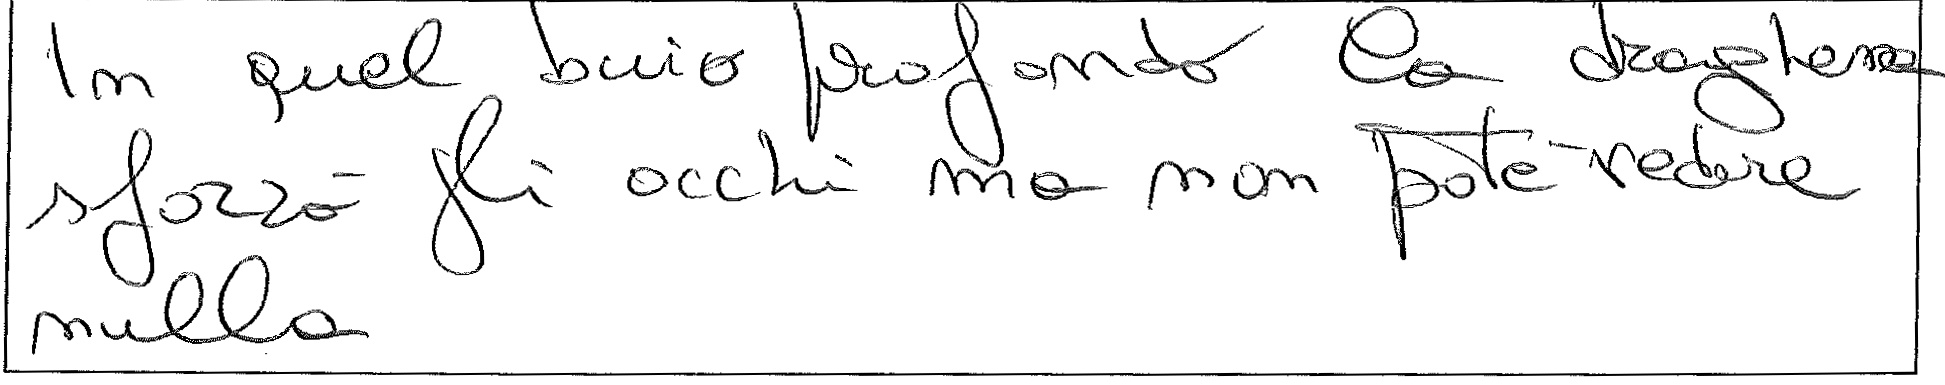 In quel buio profondo la draghessa
sforzò gli occhi ma non poté vedere
nulla